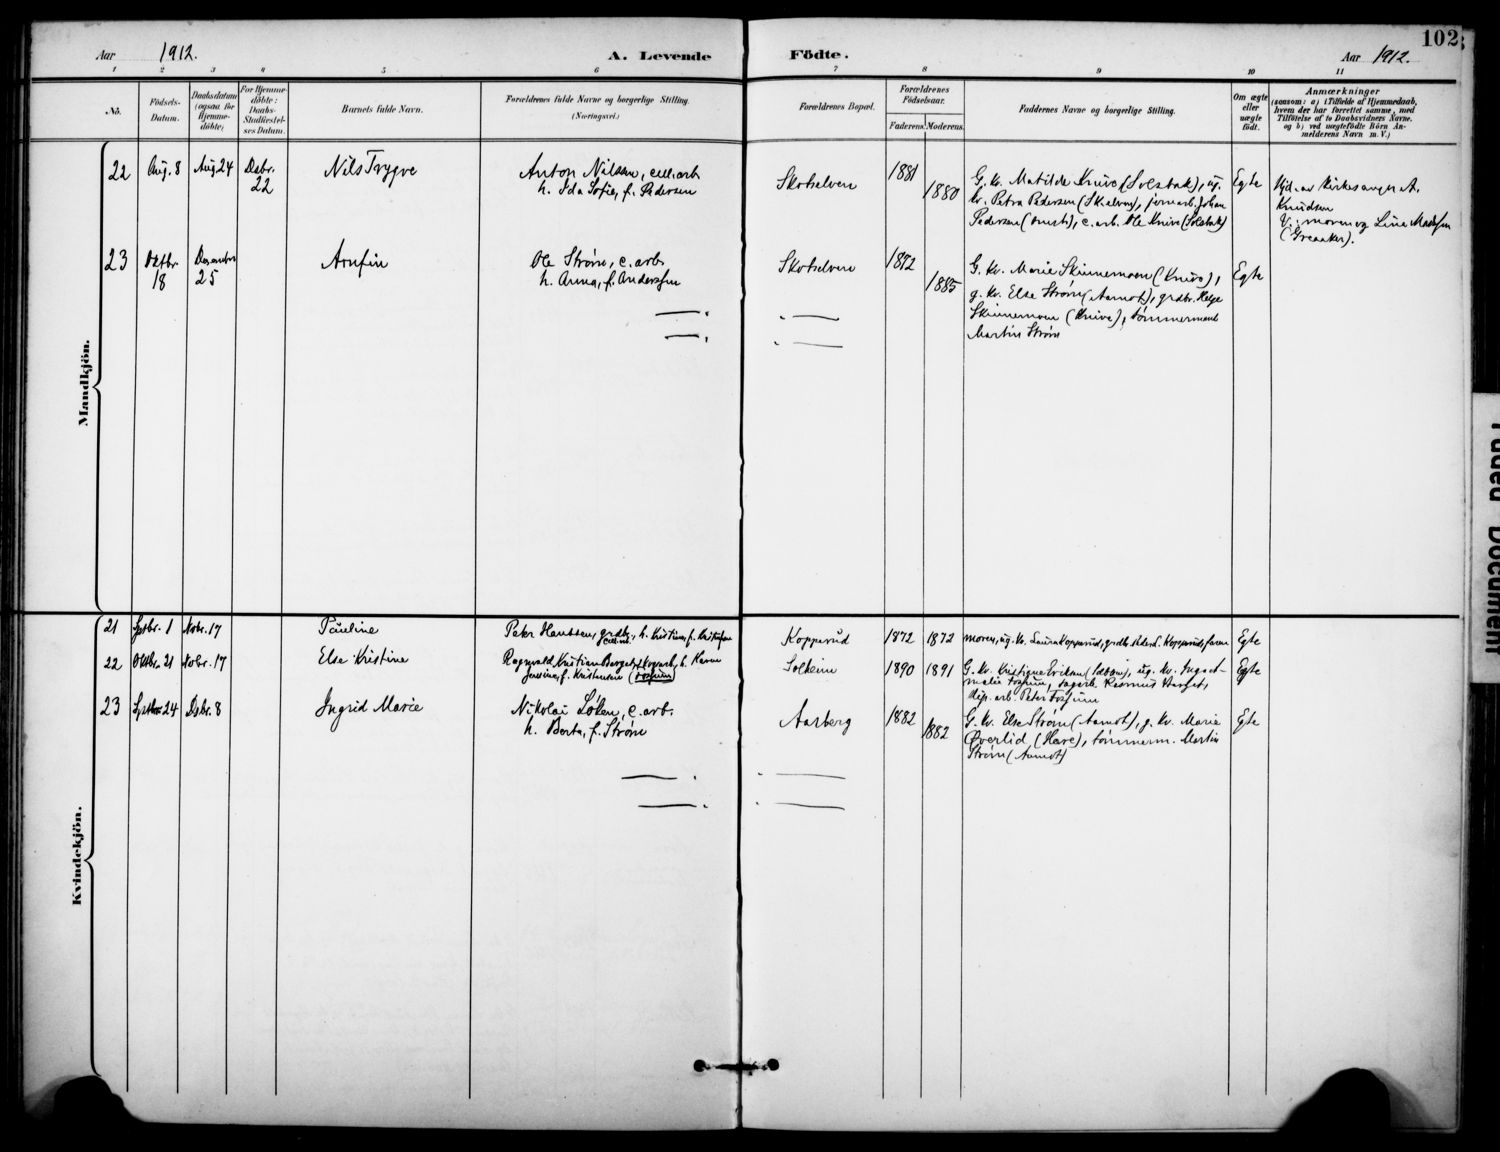 Aar 1912. A. Levende Födte. Aar 1912. 102
1 2 3 4 5 6 7 8 9 10 11
Nö.
Födsels-
Datum.
Daabsdatum
(ogsaa for
Hjemme-
döbte)
For Hjemme-
döbte:
Daabs-
Stadfæstel-
ses Datum.
Barnets fulde Navn.
Forældrenes fulde Navne og borgerlige Stilling.
(Næringsvei.)
Forældrenes Bopæl.
Forældrenes
Födselsaar.
Faderens. Moderens.
Faddernes Navne og borgerlige Stilling.
Om ægte
eller
uægte
födt.
Anmærkninger
(saasom: a) i Tilfælde af Hjemmedaab,
hvem der har forrettet samme, med
Tilföielse af to Daabsvidners Navne.
og b) ved uægtefödte Börn An-
melderens Navn m. V.)
Mandkjön.
22 Aug. 8 Aug. 24 Dsbr. 22
Nils Trygve
Anton Nilsen, cell.arb.
h. Ida Sofie, f. Pedersen
Skotselven
1881 1880
G. kv. Matilde Knive (Solstak), ug.
kv. Petra Pedersen (Skotselven), jernarb. Johan
Pedersen, c. arb. Ole Knive (Solstak)
Egte
Hjd. av kirkesanger A.
Knudsen
V: moren og Line Madsen
(Greaaker).
23 Oktbr. 18 Desember 25
Arnfin
Ole Strøm, c. arb.
h. Anna, f. Anderssen
Skotselven
1872 1885
G. kv. Marie Skinnemoen (Knive),
g. kv. Else Strøm (Aamot), grdbr. Helge
Skinnemoen (Knive), tømmermand
Martin Strøm
Egte
Kvindekjön.
21 Sptbr. 1 Novbr. 17
Pauline
Peter Hanssen, grdbr., h. Kristine, f. Kristofersen
Kopperud
1872 1872
moren, ug. kv. Laura Kopperud, grdbr. Kopperud, faren
Egte
22 Oktbr. 21 Novbr. 17
Else Kristine
Ragnvald Kristian h. Karen
f. Kristensen (Fossum)
Solheim
1890 1891
G. kv. Kristiane Eriksen, ug. kv. Ingse
Fossum, sagarb. Rasmus
arb. Peter Fossum
Egte
23 Sptbr. 24 Dsbr. 8
Ingrid Marie
Nikolai Løken, c. arb.
h. Berta, f. Strøm
Aasberg
1882 1882
G. kv. Else Strøm (Aamot), g. kv. Marie
Øverlid (Hare), tømmerm. Martin
Strøm (Aamot)
Egte
Faded Document